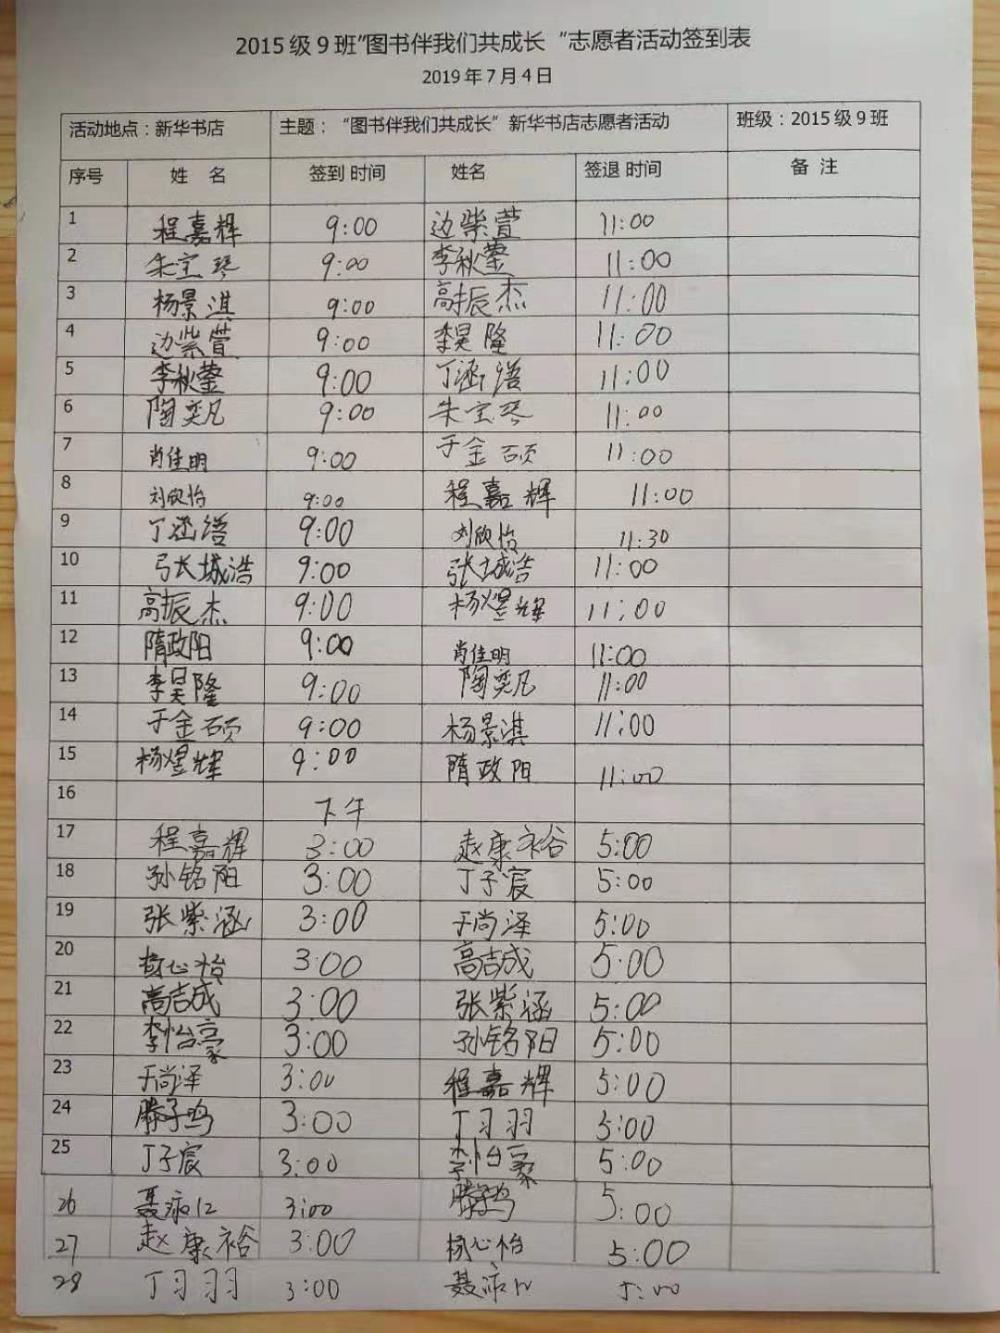 2015级9班"图书伴我们共成长 "志愿者活动签到表
2019年7月4日
活动地点：新华书店 主题："图书伴我们共成长"新华书店志愿者活动 班级：2015级9班
序号 姓 名 签到时间 姓名 签退时间 备 注
1 程嘉辉 9:00 边紫萱 11:00
2 朱宝琴 9:00 李秋蓥 11:00
3 杨景淇 9:00 高振杰 11:00
4 边紫萱 9:00 李昊隆 11:00
5 李秋蓥 9:00 丁涵语 11:00
6 陶奕凡 9:00 朱宝琴 11:00
7 肖佳明 9:00 于金硕 11:00
8 刘欣怡 9:00 程嘉辉 11:00
9 丁涵语 9:00 刘欣怡 11:30
10 张城浩 9:00 张城浩 11:00
11 高振杰 9:00 杨煜辉 11:00
12 隋政阳 9:00 肖佳明 11:00
13 李昊隆 9:00 陶奕凡 11:00
14 于金硕 9:00 杨景淇 11:00
15 杨煜辉 9:00 隋政阳 11:00
16 下午
17 程嘉辉 3:00 赵康裕 5:00
18 孙铭阳 3:00 丁子宸 5:00
19 张紫涵 3:00 于尚泽 5:00
20 心怡 3:00 高吉成 5:00
21 高吉成 3:00 张紫涵 5:00
22 李怡豪 3:00 孙铭阳 5:00
23 于尚泽 3:00 程嘉辉 5:00
24 滕子鸣 3:00 丁习羽 5:00
25 丁子宸 3:00 李怡豪 5:00
26 聂泳 3:00 滕子鸣 5:00
27 赵康裕 3:00 心怡 5:00
28 丁习羽 3:00 聂泳 5:00